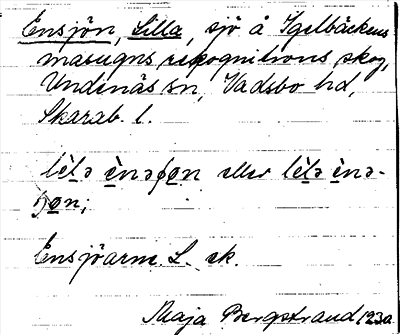 Ensjön, Lilla, sjö å Igelbäckens
masugns rekognitions skog,
Undinäs sn, Vadsbo hd,
Skarab. l.
eller
Ensjöarne L. ek.
Maja Bergstrand 1930